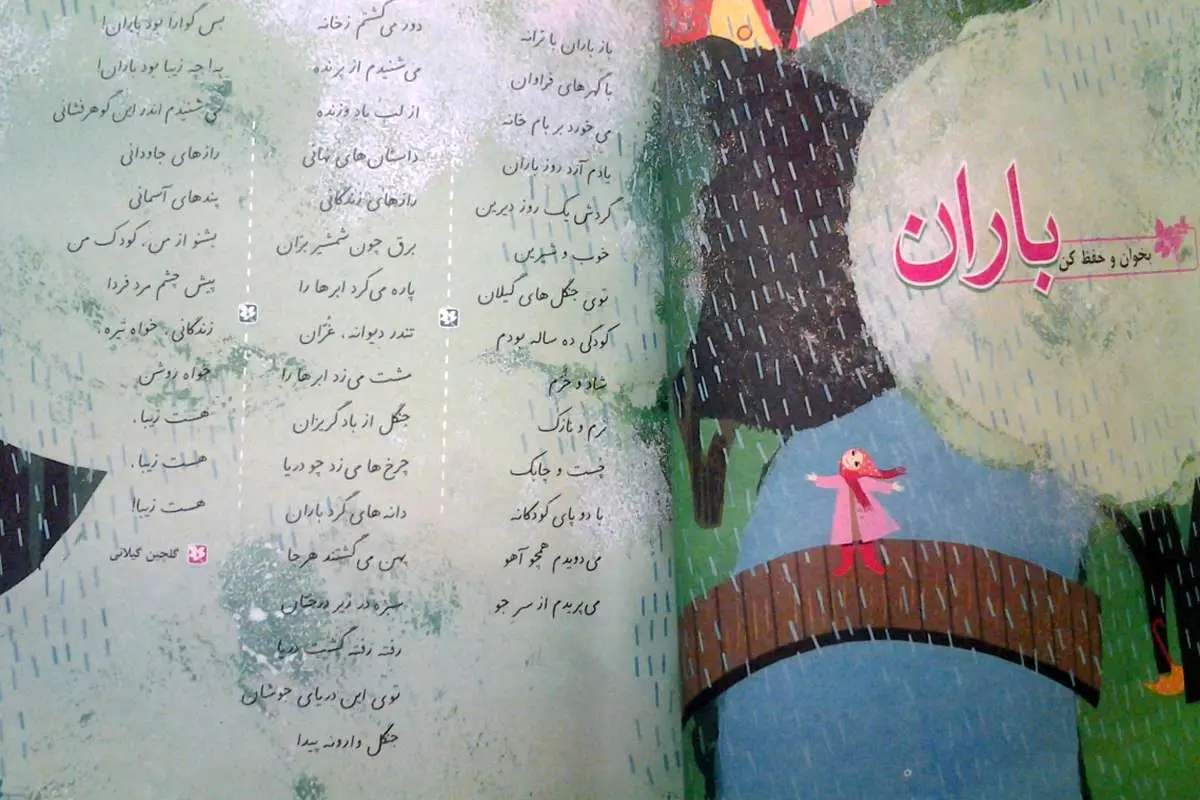 باران
بخوان و حفظ کن
باز باران با ترانه
با گهرهای فراوان
می خورد بر بام خانه
یادم آرد روز باران
گردش یک روز دیرین
خوب و شیرین
توی جنگل های گیلان
کودکی ده ساله بودم
شاد و خُرّم
نرم و نازک
چست و چابک
با دو پای کودکانه
می دویدم همچو آهو
می پریدم از سر جو
دور می گشتم زخانه
می شنیدم از پرنده
از لب باد وزنده
داستان های نهانی
رازهای زندگانی
برق چون شمشیر بران
پاره می کرد ابرها را
تندر دیوانه، غُرّان
مشت می زد ابرها را
جنگل از باد گریزان
چرخ ها می زد چو دریا
دانه های گرد باران
پهن می گشتند هر جا
سبزه در زیر درختان
رفته رفته گشت دریا
توی این دریای جوشان
جنگل وارونه پیدا
بس گوارا بود باران!
به! چه زیبا بود باران!
می شنیدم اندر این گوهرفشانی
رازهای جاودانی
پندهای آسمانی
بشنو از من، کودک من
پیش چشم مرد فردا
زندگانی، خواه تیره
خواه روشن
هست زیبا،
هست زیبا،
هست زیبا!
گلچین گیلانی